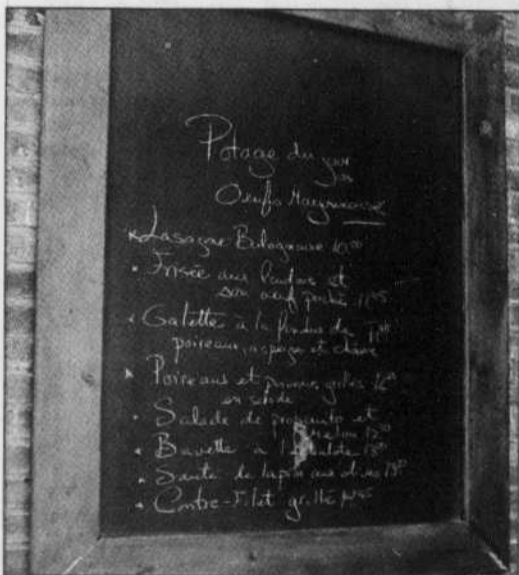 Potage du jour
ou
Oeufs Mayonnaise
Lasagne Bolognaise 10.00
Frisée aux lardons et
son oeuf poché 11.95
Galette à la fondue de
poireaux, asperge et chèvre
Poireaux et poivrons grillés
en salade
Salade de prosciutto et
melon
Bavette à l'échalote
Sauté de lapin aux olives
Contre-Filet grillé